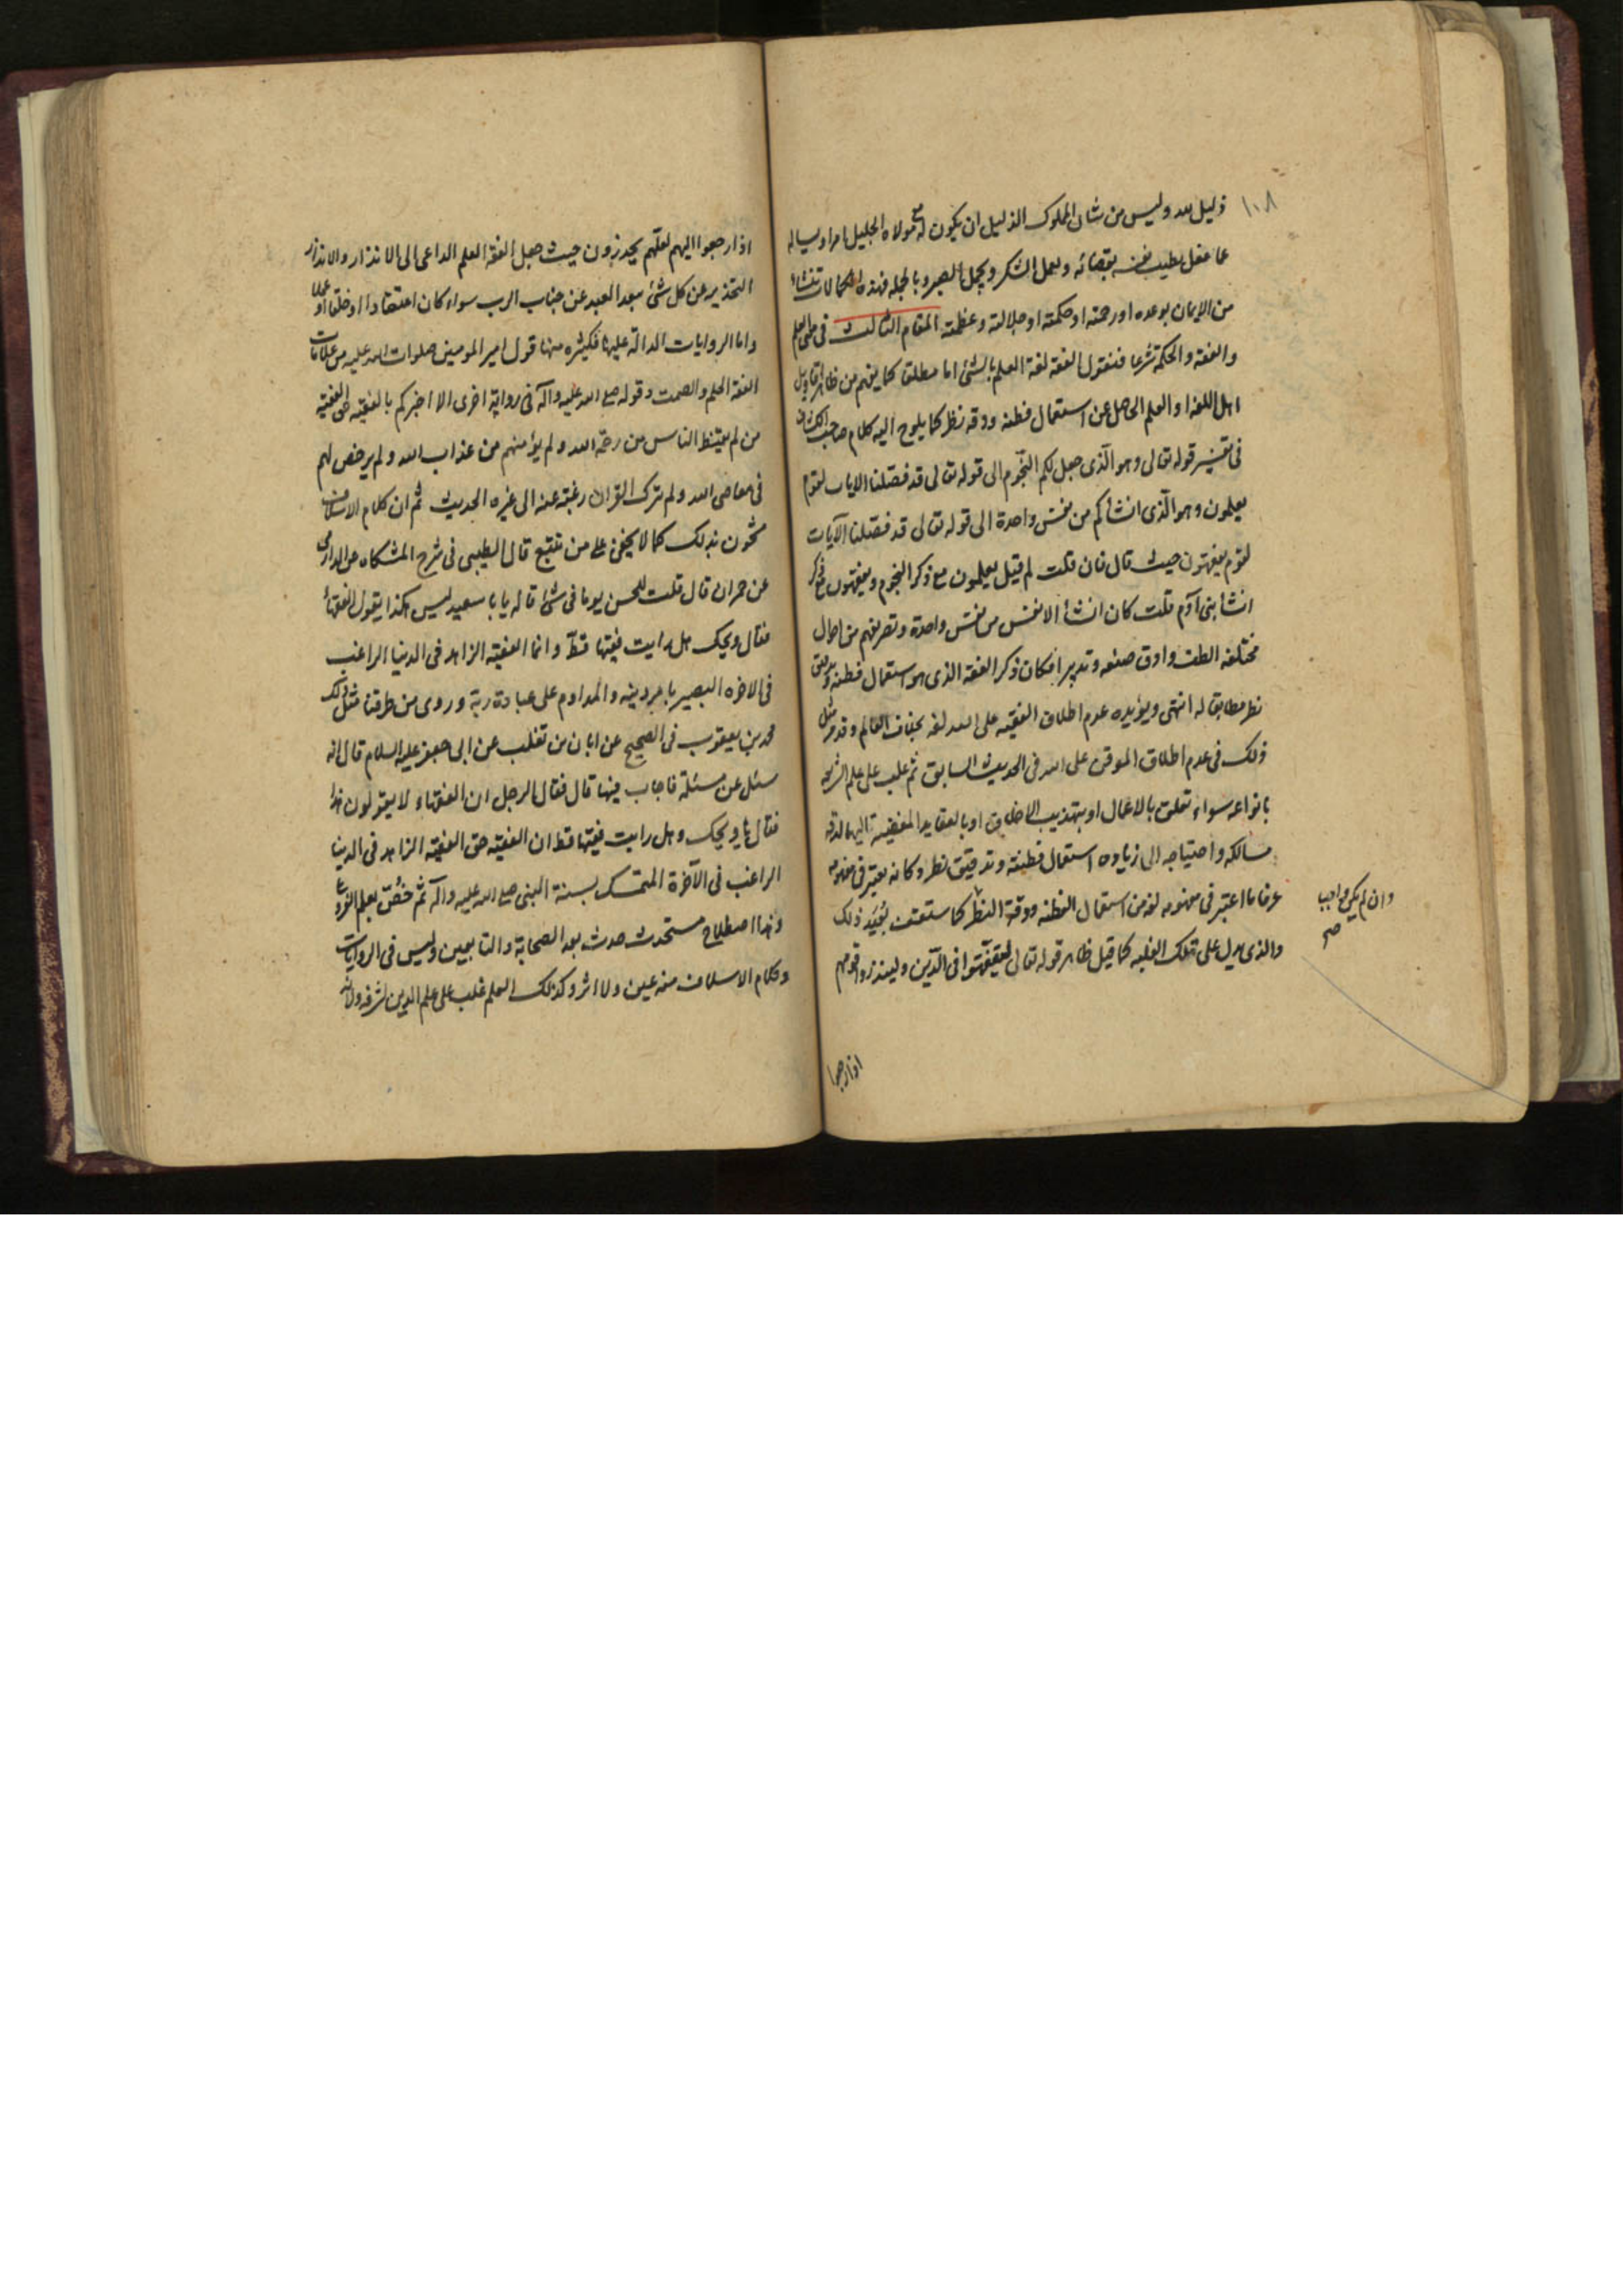 ١٠٨
ذليل له وليس من شان المملوك الذليل ان يكون له مع مولاه الجليل امرا ويساله
عما فعل بطيب نفسه بقضائه ولعمل الشكر وبجمل الصبر وبالجمله فهذه الكمالات تنشأ
من الايمان بوعده او رحمته او حكمته او جلالته وعظمته المقام الثالث فى معانى العلم
والفقه والحكمة شرعا فنقول الفقه لغة العلم بالشئ اما مطلقا كما يفهم من ظاهر اقاويل
اهل اللغه او العلم الحاصل عن استعمال فطنه ودقه نظر كما يلوح اليه كلام صاحب الكشاف
فى تفسير قوله تعالى وهو الّذى جعل لكم النّجوم الى قوله تعالى قد فصّلنا الايات لقوم
يعلمون وهو الّذى انشأكم من نفس واحدة الى قوله تعالى قد فصّلنا الآيات
لقوم يفقهون حيث قال فان قلت لم قيل يعلمون مع ذكر النجوم ويفقهون مع ذكر
انشأ بنى آدم قلت كان انشأ الانفس من نفس واحدة وتصريفهم من احوال
مختلفه الطف وادق صنعه وتدبيرا فكان ذكر الفقه الذى هو استعمال فطنه وتدقيق
نظر مطابقا له انتهى ويؤيده عدم اطلاق الفقيه على الله لغه بخلاف العالم وقد مر مثل
ذلك فى عدم اطلاق الموقن على الله فى الحديث السابق ثم غلب على علم الشريعه
بانواعه سواء تعلق بالاعمال او بتهذيب الاخلاق او بالعقايد المفضية اليها لدقه
مسالكه واحتياجه الى زياده استعمال فطنة وتدقيق نظر وكانه يعتبر فى مفهومه
عرفا ما اعتبر فى مفهومه لغه من استعمال الفطنه ودقة النظر كما ستعت بُعَيد ذلك
والذى يدل على تلك الغلبه كما قيل ظاهر قوله تعالى ليتفقّهوا فى الدّين ولينذروا قومهم
وان لم يكن واجب
صح
اذا رجعوا
اذا رجعوا اليهم لعلّهم يحذرون حيث جعل الفقه العلم الداعى الى الانذار والانذار
التحذير عن كل شئ يبعد العبد عن جناب الرب سواء كان اعتقادا او خلقا او عملا
واما الروايات الدالّة عليها فكثيره منها قول امير المومنين صلوات الله عليه من علامات
الفقه الحلم والصمت وقوله صلى الله عليه وآله فى رواية اخرى الا اخبركم بالفقيه حق الفقيه
من لم يقنط الناس من رحمة الله ولم يؤمنهم من عذاب الله ولم يرخص لهم
فى معاصى الله ولم يترك القران رغبته عنه الى غيره الحديث ثم ان كلام الاسلاف
مشحون بذلك كما لا يخفى على من تتبع قال الطيبى فى شرح المشكاه عن الدارمى
عن عمران قال قلت للحسن يوما فى شئ قاله يا با سعيد ليس هكذا يقول الفقهأ
فقال ويحك هل رايت فقيها قطّ وانما الفقيه الزاهد فى الدنيا الراغب
فى الاخره البصير بامر دينه والمداوم على عبادة ربه وروى من طرقنا مثل ذلك
محمد بن يعقوب فى الصحيح عن ابان بن تغلب عن ابى جعفر عليه السلام قال انه
سئل عن مسئلة فاجاب فيها قال فقال الرجل ان الفقهاء لا يقولون هذا
فقال يا ويحك وهل رايت فقيها قط ان الفقيه حق الفقيه الزاهد فى الدنيا
الراغب فى الآخرة المتمسك بسنة النبى صلى الله عليه وآله ثم خُصّ بعلم الفروع
وهذا اصطلاح مستحدث حدث بعد الصحابة والتابعين وليس فى الروايات
وكلام الاسلاف منه عين ولا اثر وكذلك العلم غلب على علم الدين لشرفه ولانه